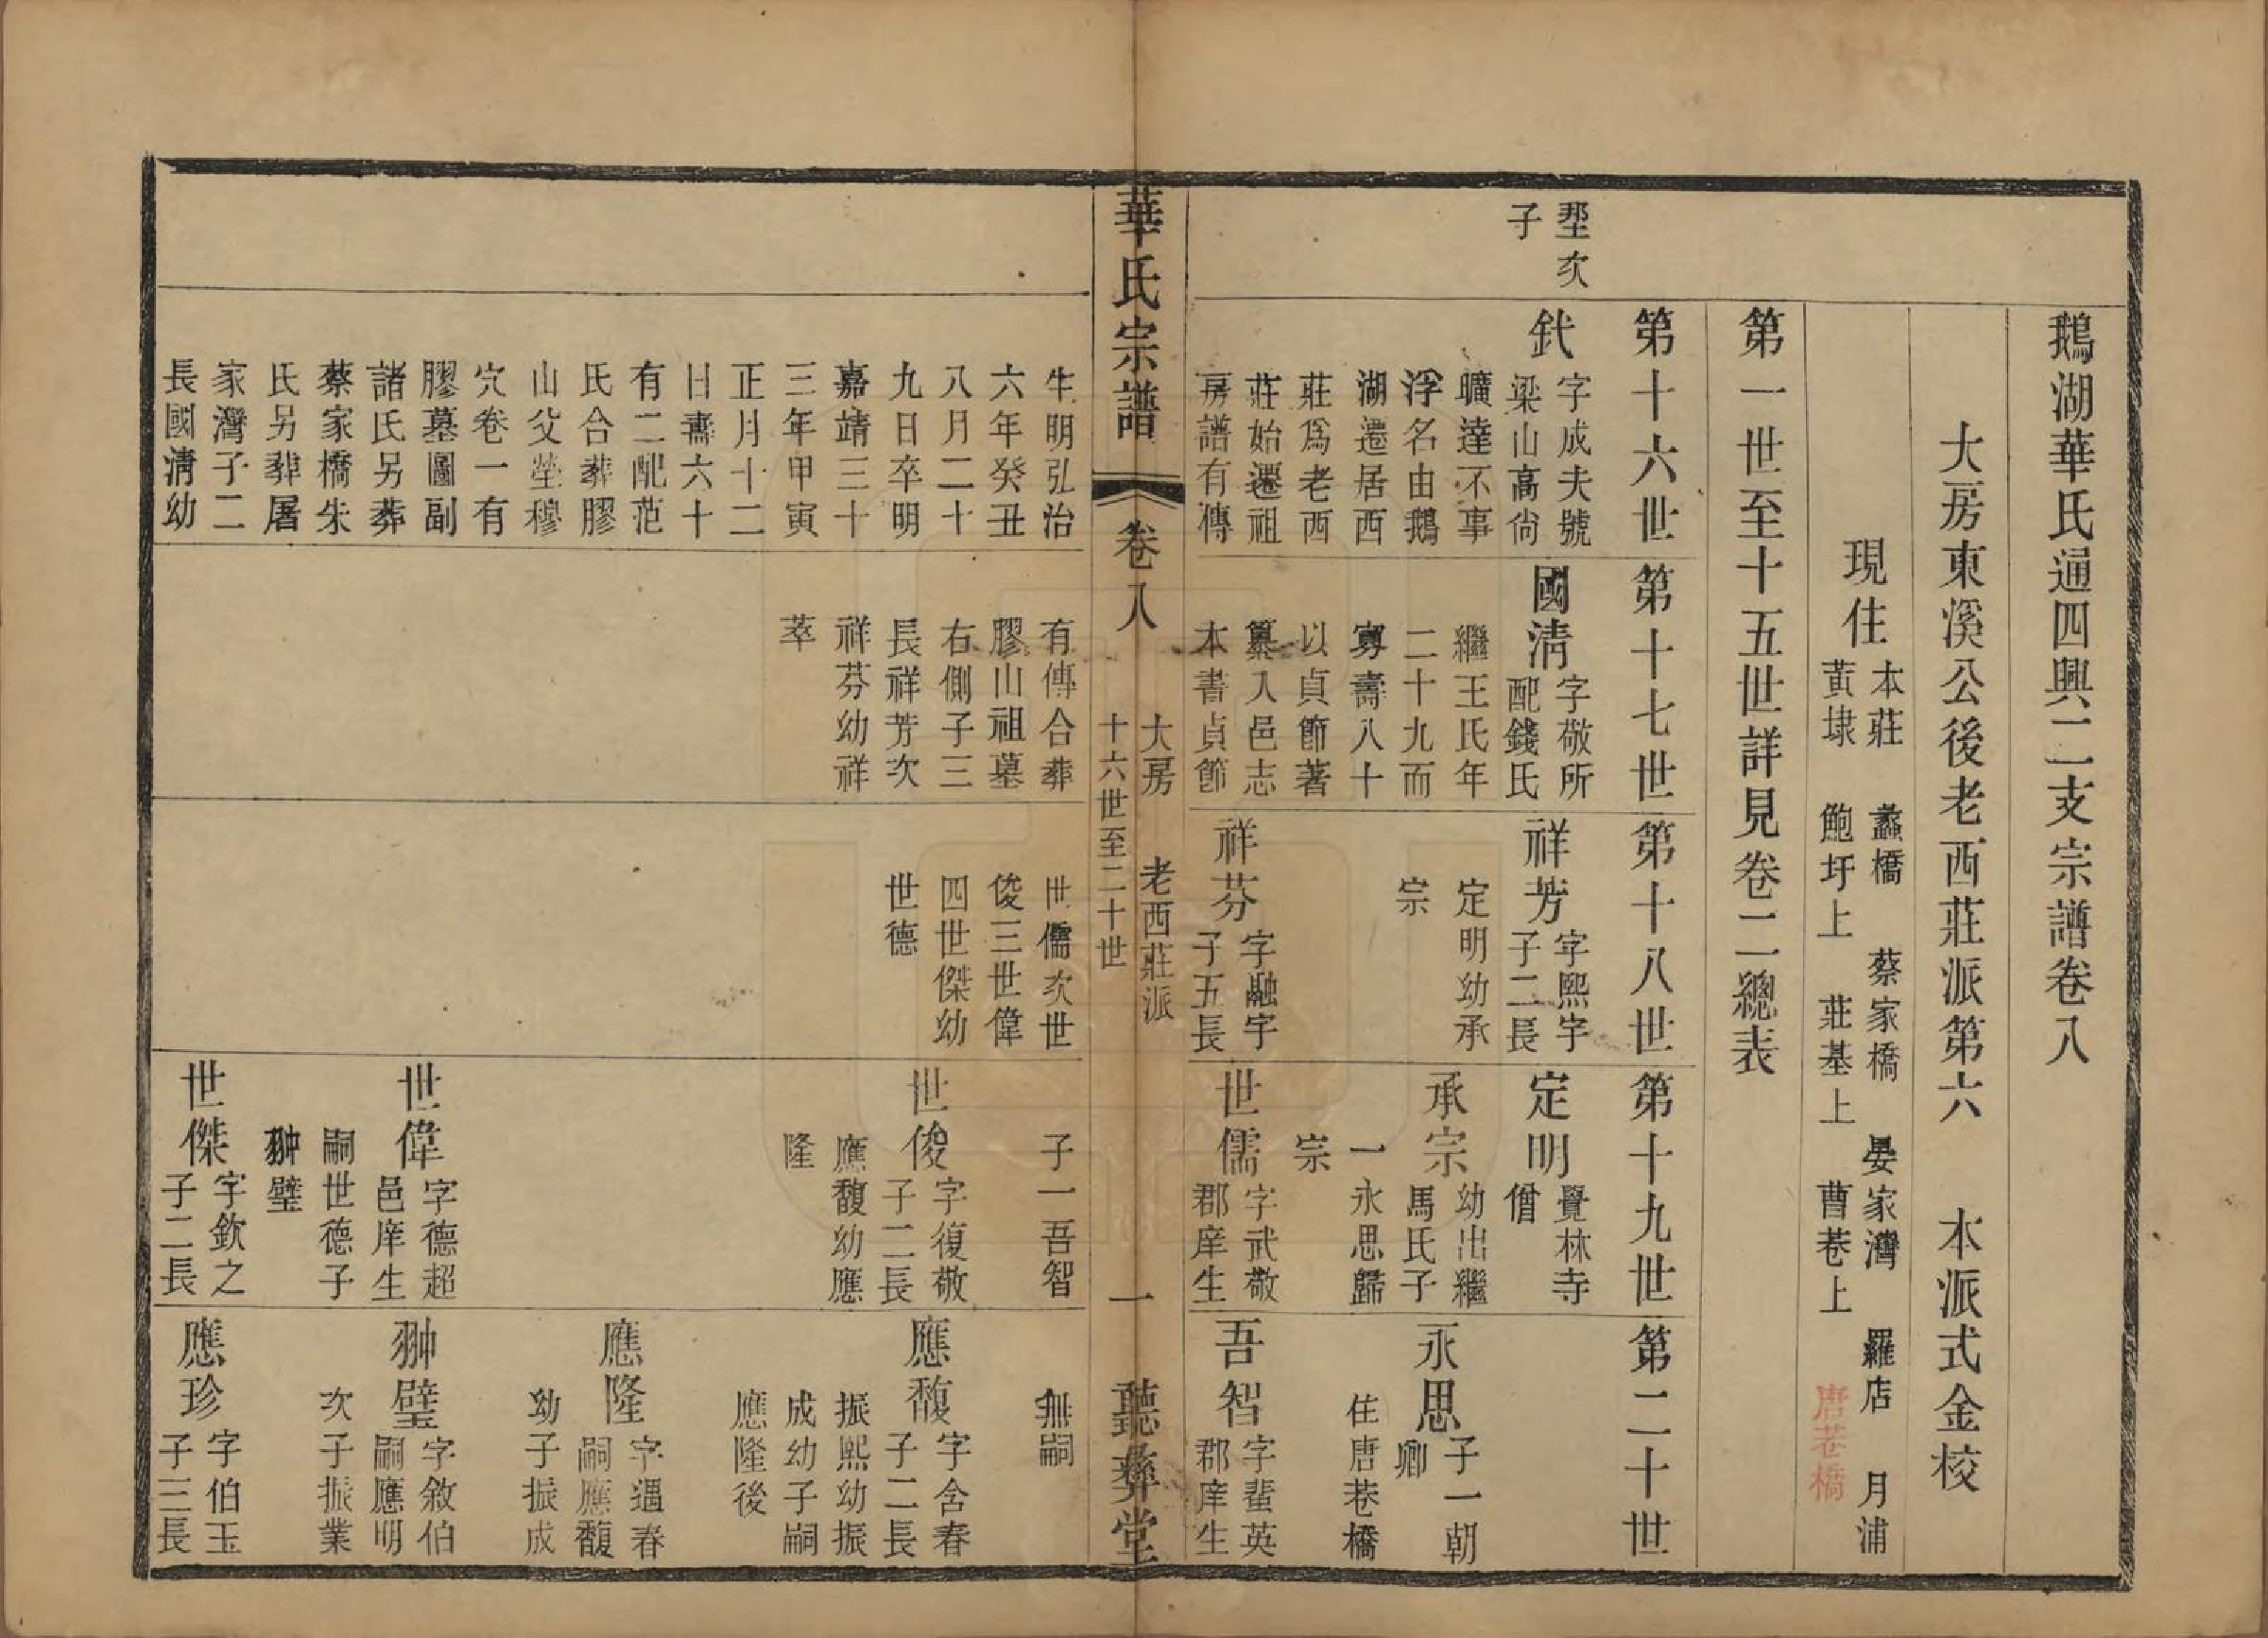 鵝湖華氏通四興二支宗譜卷八
大房東溪公後老西莊派第六　本派式金校
現住
本莊　蠡橋　蔡家橋　晏家灣　羅店　月浦
黃埭　鮑圩上　莊基上　曹巷上　唐巷橋
第一世至十五世詳見卷二總表
第十六世
第十七世
第十八世
第十九世
第二十世
墅次
子
釴
字成夫號
梁山高尚
曠達不事
浮名由鵝
湖遷居西
莊為老西
莊始遷祖
房譜有傳
國淸
字敬所
配錢氏
繼王氏年
二十九而
寡壽八十
以貞節著
纂入邑志
本書貞節
祥芳
字熙宇
子二長
定明幼承
宗
祥芬
字融宇
子五長
定明
覺林寺
僧
承宗
幼出繼
馬氏子
一永思歸
宗
世儒
字武敬
郡庠生
永思
子一朝
卿
住唐巷橋
吾智
字蜚英
郡庠生
華氏宗譜
卷八
大房　老西莊派
十六世至二十世
一
聽彝堂
生明弘治
六年癸丑
八月二十
九日卒明
嘉靖三十
三年甲寅
正月十二
日壽六十
有二配范
氏合葬膠
山父塋穆
穴卷一有
膠墓圖副
諸氏另葬
蔡家橋朱
氏另葬屠
家灣子二
長國淸幼
有傳合葬
膠山祖墓
右側子三
長祥芳次
祥芬幼祥
萃
世儒次世
俊三世偉
四世傑幼
世德
子一吾智
世俊
字復敬
子二長
應馥幼應
隆
世偉
字德超
邑庠生
嗣世德子
翀璧
世傑
字欽之
子二長
無嗣
應馥
字含春
子二長
振熙幼振
成幼子嗣
應隆後
應隆
字遇春
嗣應馥
幼子振成
翀璧
字敘伯
嗣應明
次子振業
應珍
字伯玉
子三長